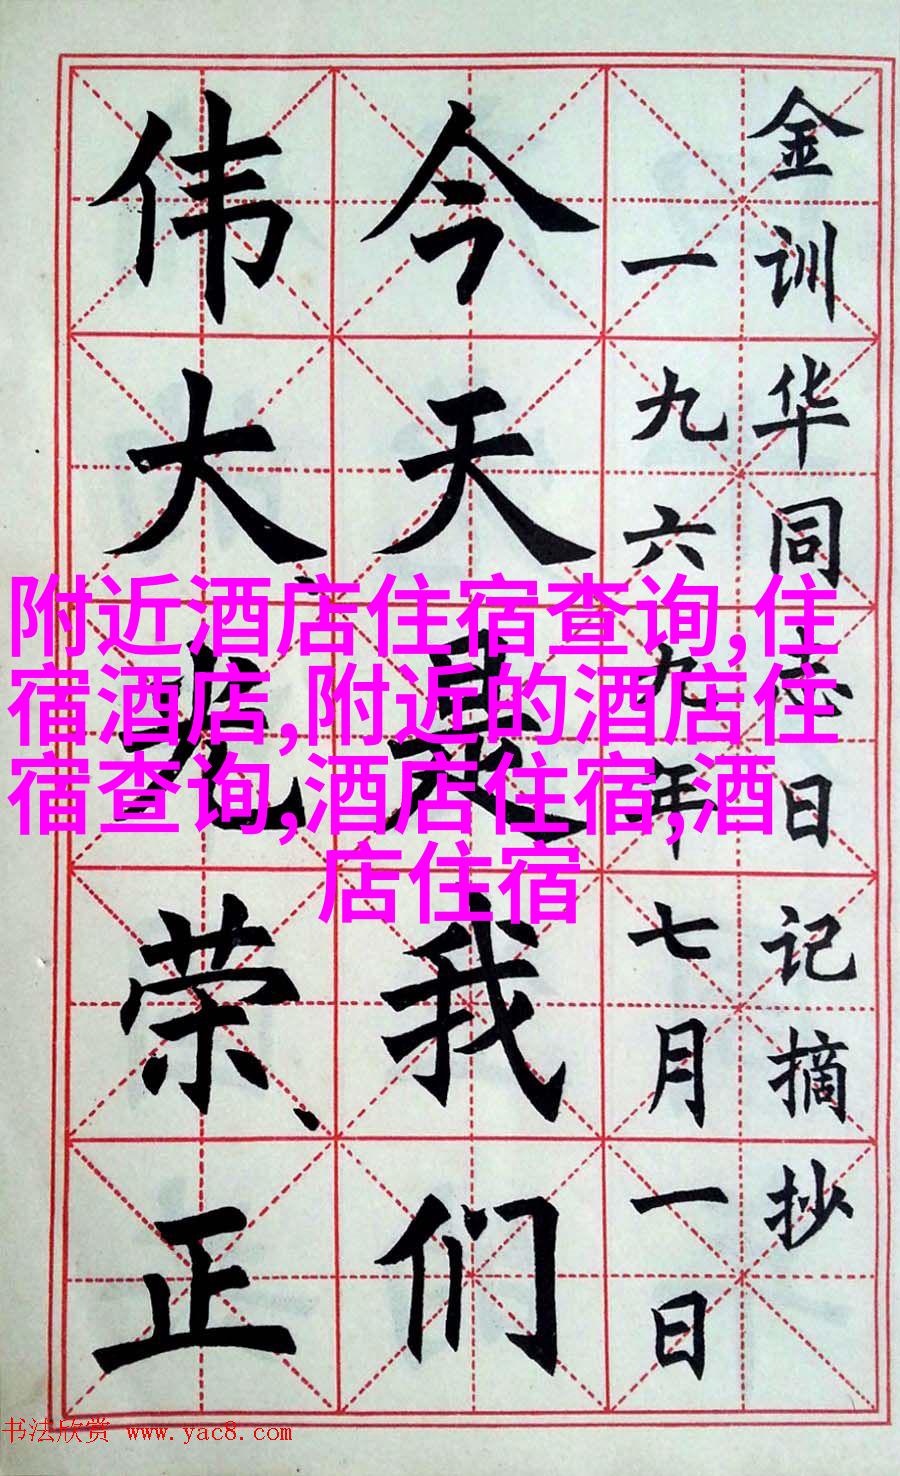 金训华同志日记摘抄
一九六九年七月一日
今天是我们
伟大、光荣、正
附近酒店住宿查询,住
宿酒店,附近的酒店住
宿查询,酒店住宿,酒
店住宿
书法欣赏 www.yac8.com